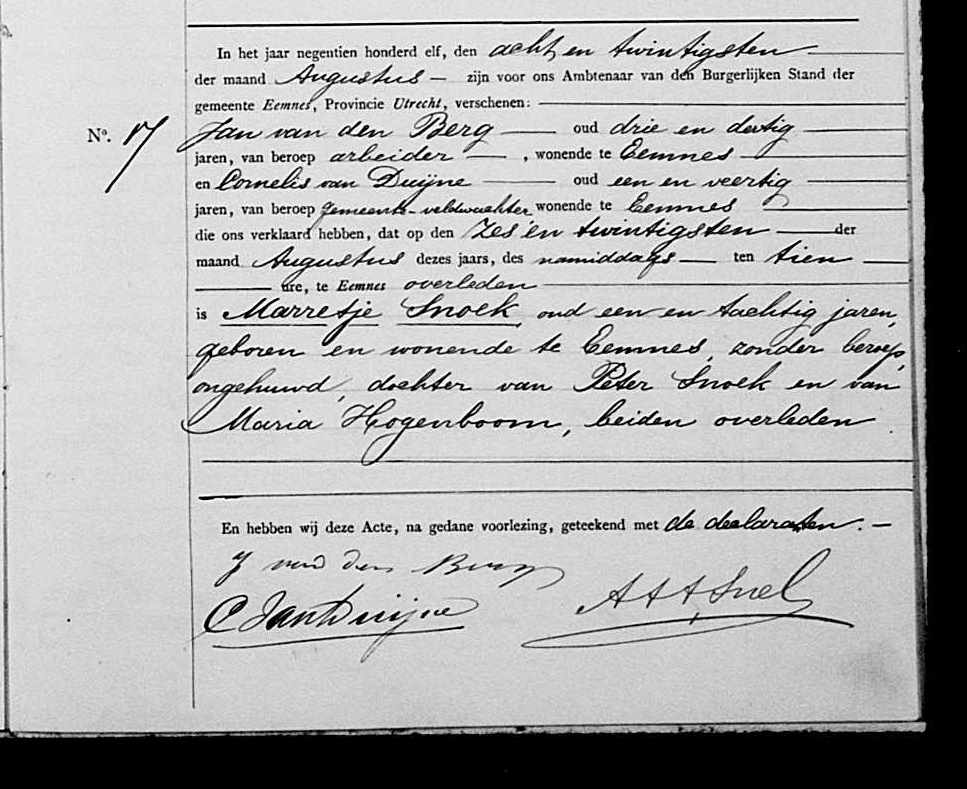 In het jaar negentien honderd elf, den acht en twintigsten
der maand Augustus zijn voor ons Ambtenaar van den Burgerlijken Stand der
gemeente Eemnes, Provincie Utrecht, verschenen:
Nº. 17 Jan van den Berg oud drie en dertig
jaren, van beroep arbeider, wonende te Eemnes
en Cornelis van Duijne oud een en veertig
jaren, van beroep gemeente-veldwachter wonende te Eemnes
die ons verklaard hebben, dat op den Zes en twintigsten der
maand Augustus dezes jaars, des namiddags ten tien
ure, te Eemnes overleden
is Marretje Snoek, oud een en tachtig jaren,
geboren en wonende te Eemnes, zonder beroep,
ongehuwd, dochter van Peter Snoek en van
Maria Hogenboom, beiden overleden.
En hebben wij deze Acte, na gedane voorlezing, geteekend met de declaranten.
J van den Berg
C VanDuijne
A Snel